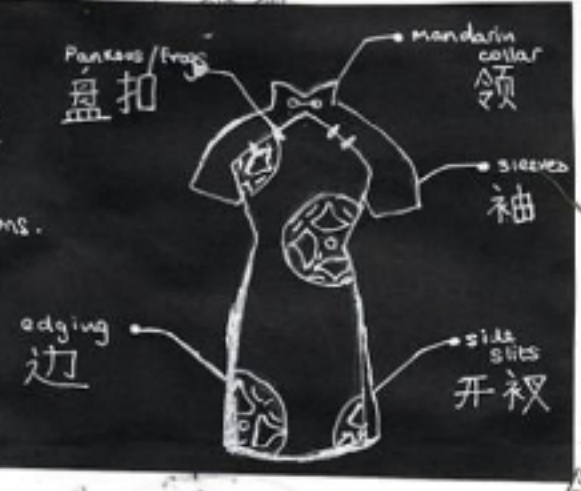 Pankous/frogs
盘扣
mandarin
collar
领
sleeves
袖
ns.
edging
边
side
slits
开衩